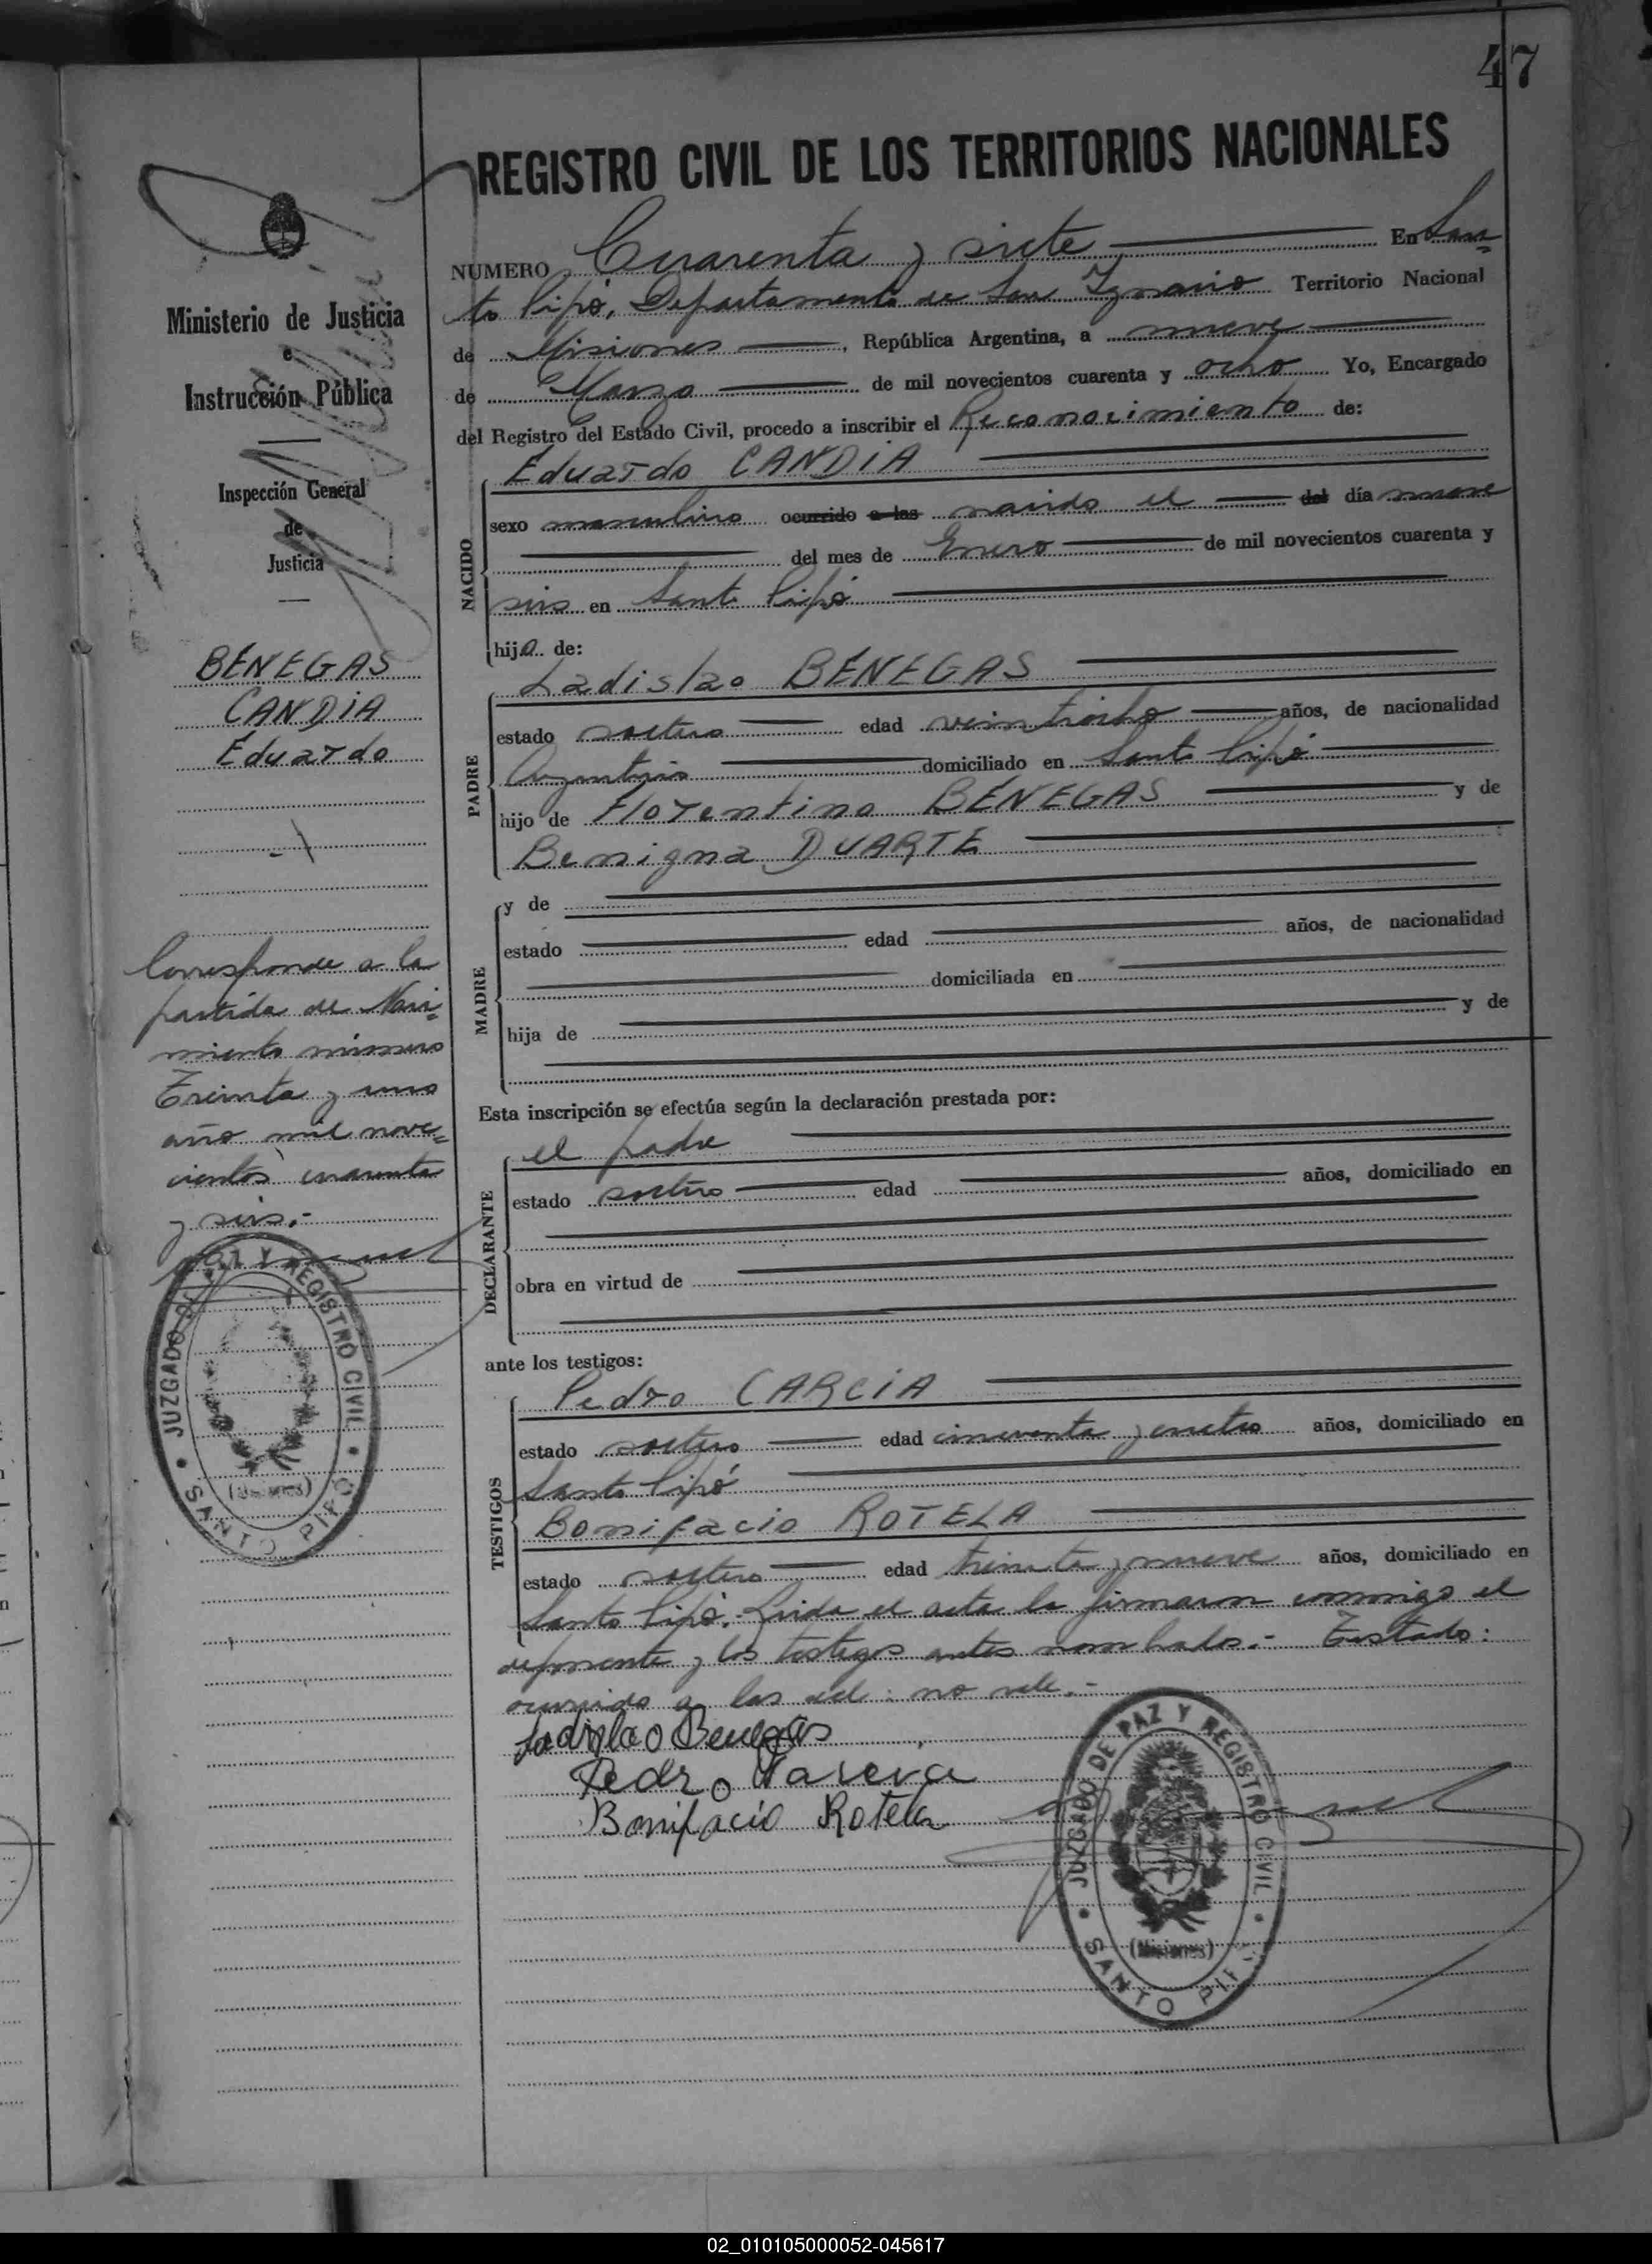 47
REGISTRO CIVIL DE LOS TERRITORIOS NACIONALES
Ministerio de Justicia
e
Instrucción Pública
Inspección General
de
Justicia
BENEGAS
CANDIA
Eduardo
Corresponde a la
partida de Naci=
miento número
Treinta y uno
año mil nove=
cientos cuarenta
y seis.-
JUZGADO DE PAZ Y REGISTRO CIVIL
SANTO PIPÓ
(Misiones)
NUMERO Cuarenta y siete En San=
to Pipó, Departamento de San Ignacio Territorio Nacional
de Misiones, República Argentina, a nueve
de Marzo de mil novecientos cuarenta y ocho Yo, Encargado
del Registro del Estado Civil, procedo a inscribir el Reconocimiento de:
NACIDO
Eduardo CANDIA
sexo masculino ocurrido a las nacido el del día nueve
del mes de Enero de mil novecientos cuarenta y
seis en Santo Pipó
hijo de:
PADRE
Ladislao BENEGAS
estado soltero edad veintiocho años, de nacionalidad
Argentino domiciliado en Santo Pipó
hijo de Florentino BENEGAS y de
Benigna DUARTE
MADRE
y de
estado edad años, de nacionalidad
domiciliada en
hija de y de
Esta inscripción se efectúa según la declaración prestada por:
DECLARANTE
el padre
estado soltero edad años, domiciliado en
obra en virtud de
ante los testigos:
TESTIGOS
Pedro CARCIA
estado soltero edad cincuenta y cuatro años, domiciliado en
Santo Pipó
Bonifacio ROTELA
estado soltero edad treinta y nueve años, domiciliado en
Santo Pipó.- Leída el acta la firmaron conmigo el
deponente y los testigos antes nombrados.- Testado:
ocurrido a las del: no vale.-
Ladislao Benegas
Pedro
Bonifacio Rotela
JUZGADO DE PAZ Y REGISTRO CIVIL
SANTO PIPÓ
(Misiones)
02_010105000052-045617